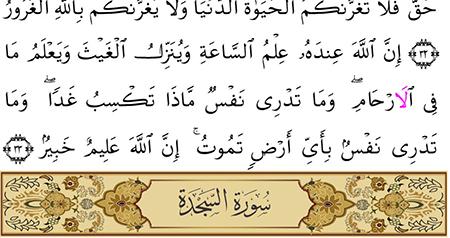 حَقٌّ فَلَا تَغُرَّنَّكُمُ الْحَيَوٰةُ الدُّنْيَا وَلَا يَغُرَّنَّكُم بِاللَّهِ الْغَرُورُ
﴿٣٣﴾ إِنَّ اللَّهَ عِندَهُ عِلْمُ السَّاعَةِ وَيُنَزِّلُ الْغَيْثَ وَيَعْلَمُ مَا
فِى الْاَرْحَامِ ۖ وَمَا تَدْرِى نَفْسٌ مَّاذَا تَكْسِبُ غَدًا ۖ وَمَا
تَدْرِى نَفْسٌۢ بِأَىِّ أَرْضٍ تَمُوتُ ۚ إِنَّ اللَّهَ عَلِيمٌ خَبِيرٌۢ ﴿٣٤﴾
سُورَةُ السَّجْدَةِ